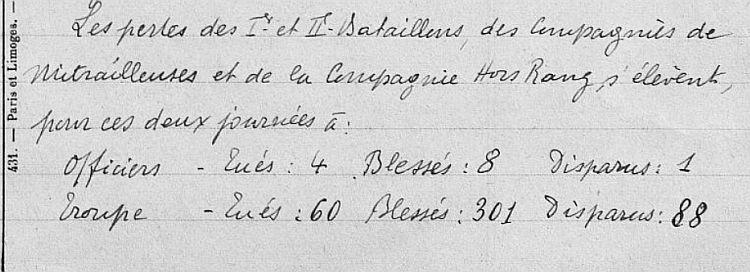 431. — Paris et Limoges. —
Les pertes des Ier et IIe Bataillons, des Compagnies de
Mitrailleuses et de la Compagnie Hors Rang, s'élèvent,
pour ces deux journées à:
Officiers - Tués : 4 Blessés : 8 Disparus : 1
Troupe - Tués : 60 Blessés : 301 Disparus : 88